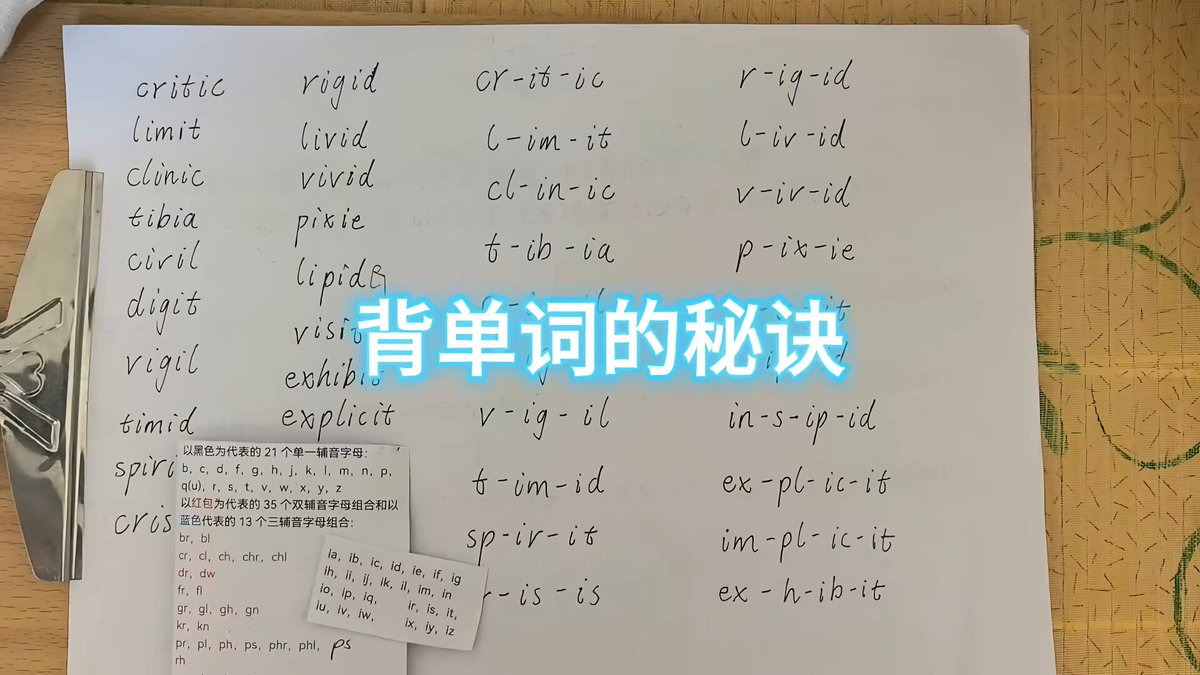 critic
limit
clinic
tibia
civil
digit
vigil
timid
rigid
livid
vivid
pixie
explicit
cr-it-ic
l-im-it
cl-in-ic
t-ib-ia
v-ig-il
t-im-id
sp-ir-it
r-ig-id
l-iv-id
v-iv-id
p-ix-ie
in-s-ip-id
ex-pl-ic-it
im-pl-ic-it
ex-h-ib-it
背单词的秘诀
以黑色为代表的 21 个单一辅音字母:
b, c, d, f, g, h, j, k, l, m, n, p,
q(u), r, s, t, v, w, x, y, z
以红包为代表的 35 个双辅音字母组合和以
蓝色代表的 13 个三辅音字母组合:
br, bl
cr, cl, ch, chr, chl
dr, dw
fr, fl
gr, gl, gh, gn
kr, kn
pr, pl, ph, ps, phr, phl, ps
rh
ia, ib, ic, id, ie, if, ig
ih, ii, ij, ik, il, im, in
io, ip, iq, ir, is, it,
iu, iv, iw, ix, iy, iz